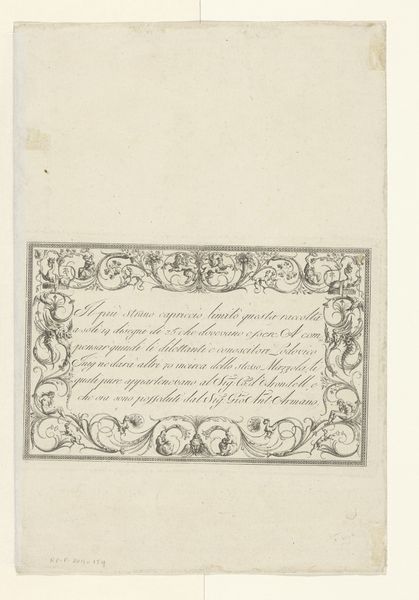 Il più strano capriccio limitò questa raccolta
a soli 19 disegni de 25 che dovevano essere. A com
pensar quindi li dilettanti e conoscitori Lodovico
Inig ne darà altri 20 incirca dello stesso Mazzola, li
quali pure appartenevano al Sig. Arundell e
che ora sono posseduti dal Sig. Gio. Ant. Armano.
RP-P-2011-159